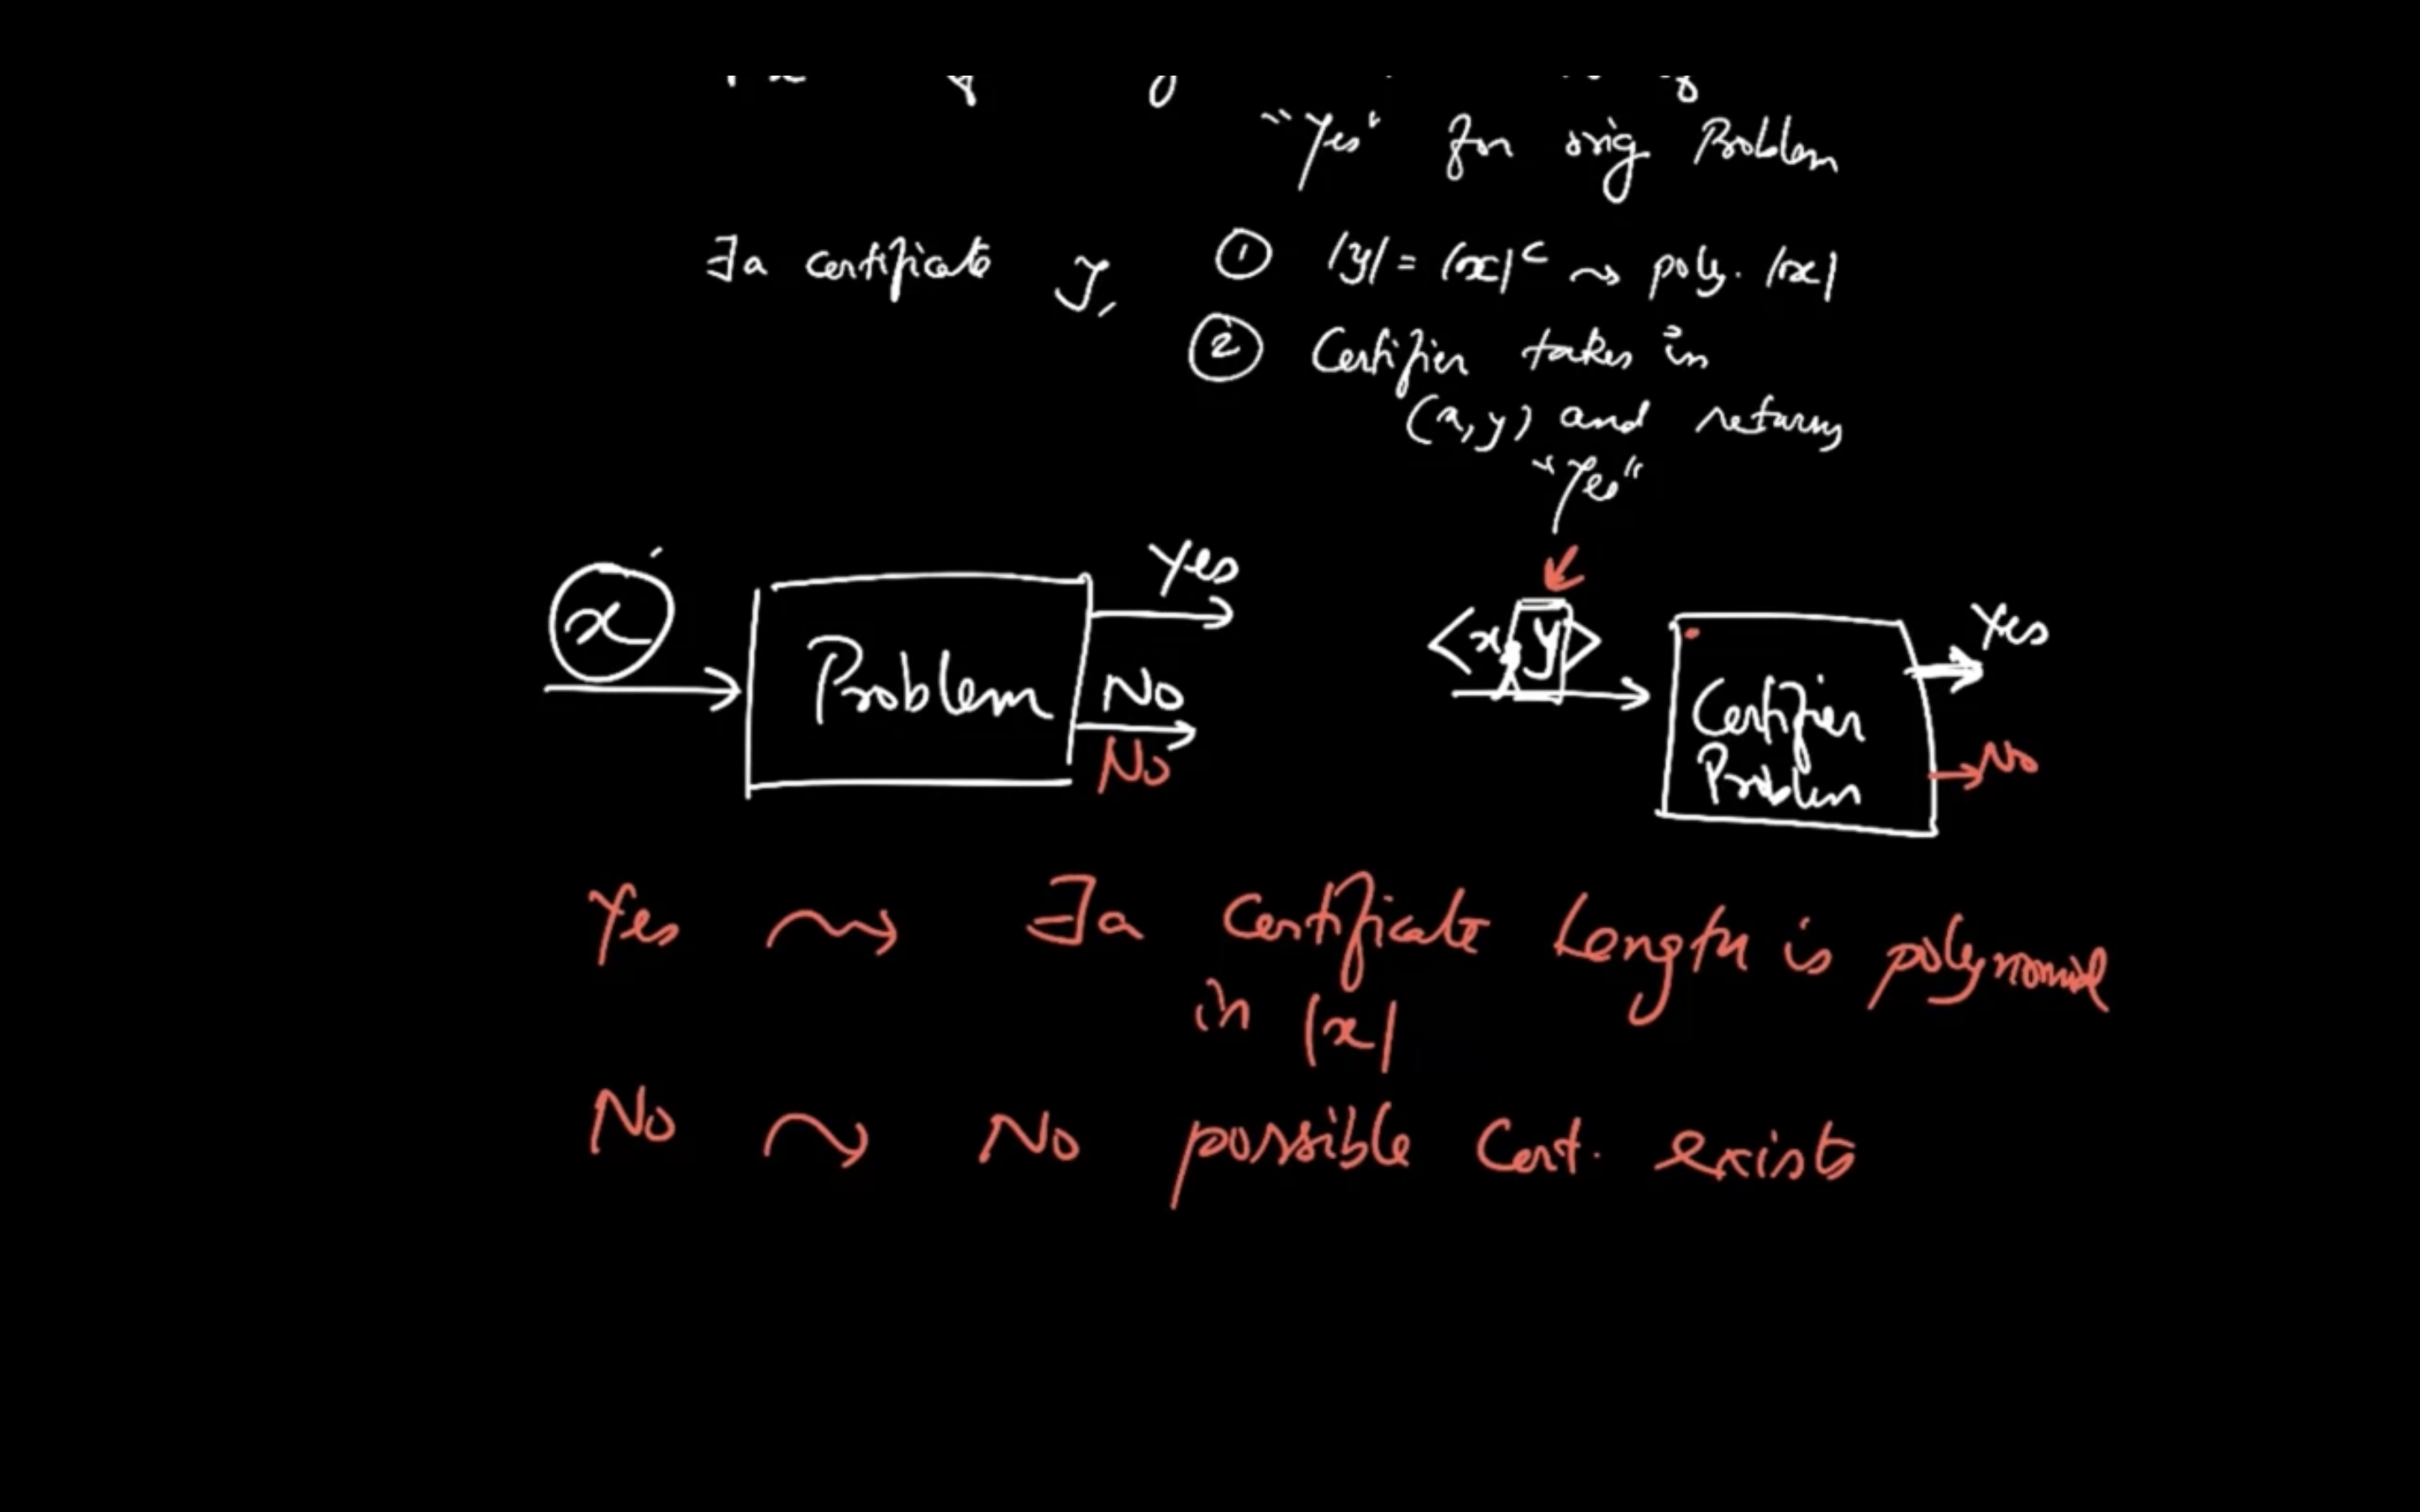 "Yes" for orig Problem
∃ a certificate y, ① |y| = |x|^c ⇝ poly. |x|
② Certifier takes in
(x, y) and returns
"Yes"
x Problem Yes
No
No
<x, y> Certifier Problem Yes
No
Yes ⇝ ∃ a Certificate Length is polynomial
in |x|
No ⇝ No possible Cert. exists